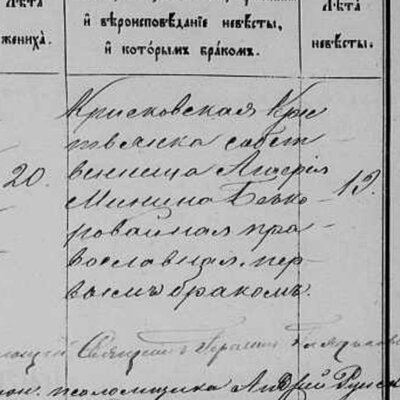 Лѣта
жениха.
и вѣроисповѣданіе невѣсты,
и которымъ бракомъ.
Лѣта
невѣсты.
Крисковская Кре
стьянка собст
20. венница Лукерія 19.
Минина Безко
ровайная пра
вославная. пер
вымъ бракомъ.
Священ
псаломщика Андрей